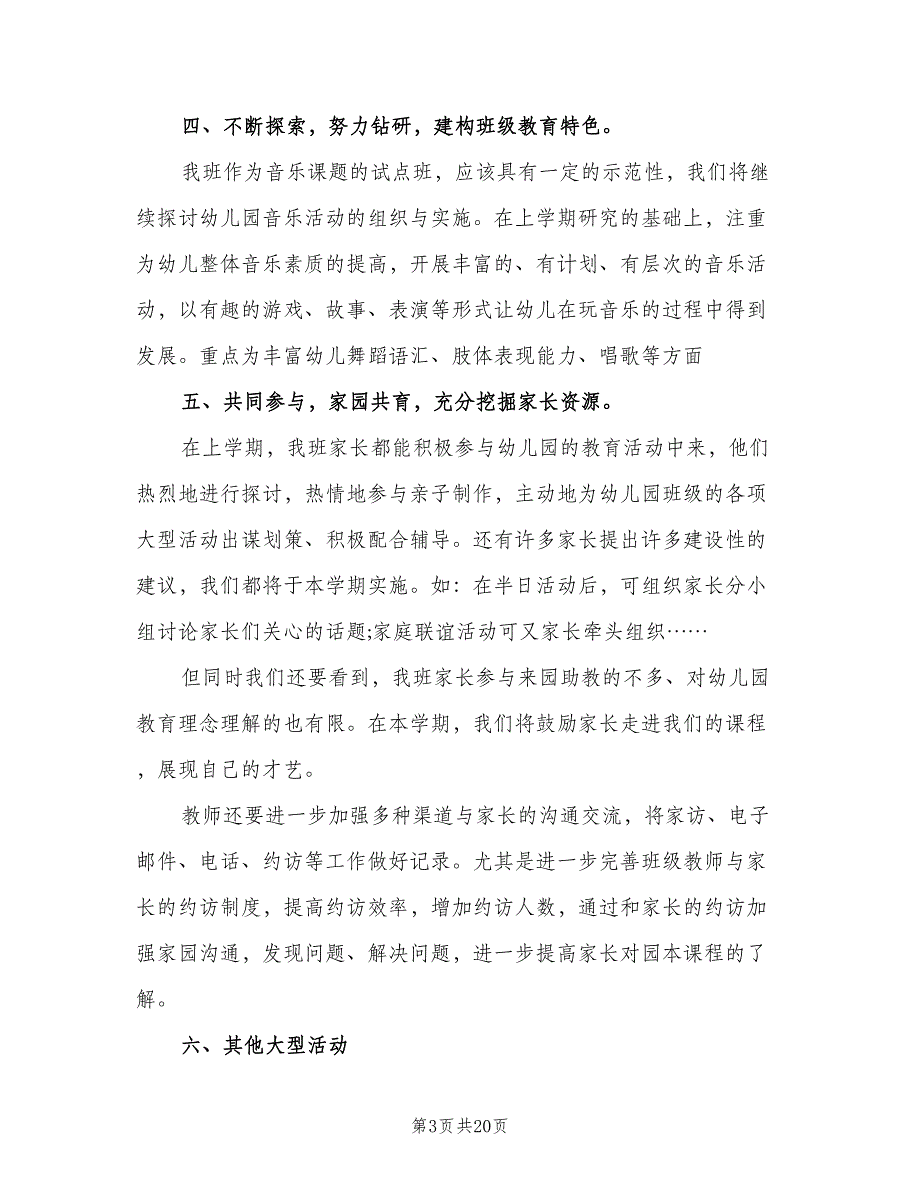 四、不断探索，努力钻研，建构班级教育特色。
我班作为音乐课题的试点班，应该具有一定的示范性，我们将继
续探讨幼儿园音乐活动的组织与实施。在上学期研究的基础上，注重
为幼儿整体音乐素质的提高，开展丰富的、有计划、有层次的音乐活
动，以有趣的游戏、故事、表演等形式让幼儿在玩音乐的过程中得到
发展。重点为丰富幼儿舞蹈语汇、肢体表现能力、唱歌等方面
五、共同参与，家园共育，充分挖掘家长资源。
在上学期，我班家长都能积极参与幼儿园的教育活动中来，他们
热烈地进行探讨，热情地参与亲子制作，主动地为幼儿园班级的各项
大型活动出谋划策、积极配合辅导。还有许多家长提出许多建设性的
建议，我们都将于本学期实施。如：在半日活动后，可组织家长分小
组讨论家长们关心的话题;家庭联谊活动可又家长牵头组织……
但同时我们还要看到，我班家长参与来园助教的不多、对幼儿园
教育理念理解的也有限。在本学期，我们将鼓励家长走进我们的课程
，展现自己的才艺。
教师还要进一步加强多种渠道与家长的沟通交流，将家访、电子
邮件、电话、约访等工作做好记录。尤其是进一步完善班级教师与家
长的约访制度，提高约访效率，增加约访人数，通过和家长的约访加
强家园沟通，发现问题、解决问题，进一步提高家长对园本课程的了
解。
六、其他大型活动
第3页共20页